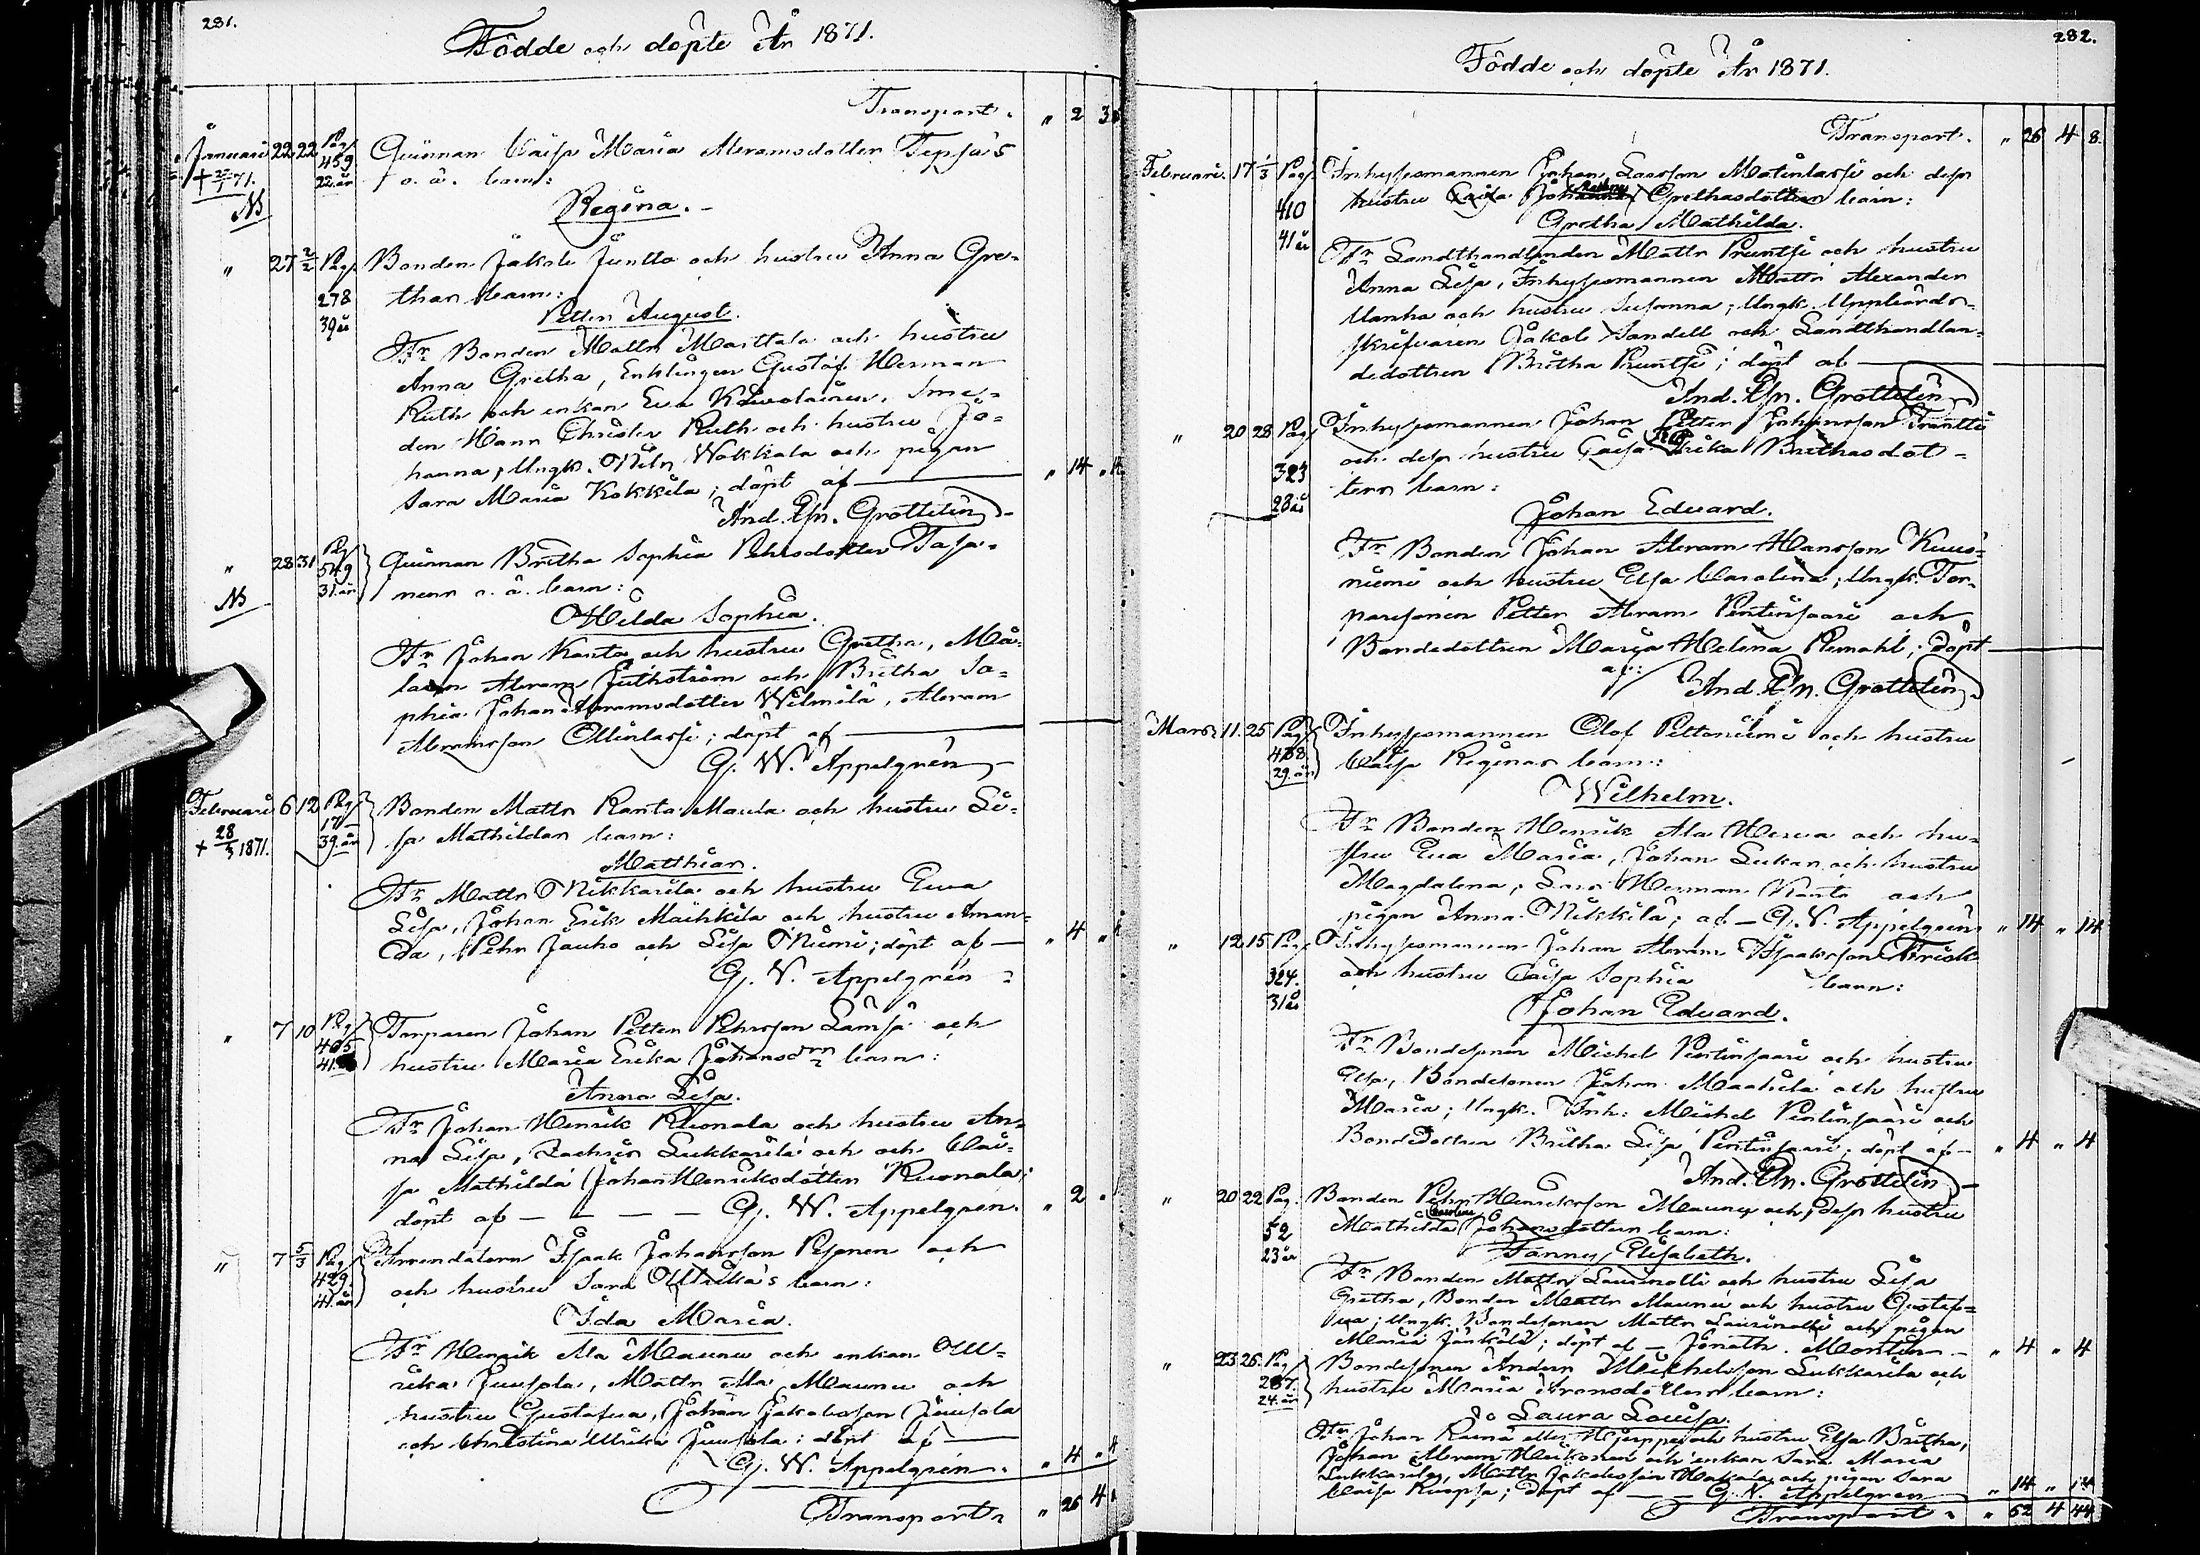 281.
Födde och döpte År 1871.
Transport. " 2
Januari 22 22 Pag. 459 22 år Quinnan Caisa Maria Abramsdotter Tepsa's
+ 71. o. ä. barn:
Regina.
" 27 2/2 Pag. 278 39 år Bonden Jakob Juntto och hustru Anna Gre-
thas barn:
Petter August.
Fr Bonden Matts Marttala och hustru
Anna Gretha, Enklingen Gustaf Herman
Ruth och enkan Eva Koivolainen, Sme-
den Hans Christer Ruth och hustru Jo-
hanna, Ungk. Nils Wakkala och pigan
Sara Maria Kokkila; döpt af " 14 "
And. Joh. Grottelin
" 28 31 Pag. 549 31 år Quinnan Britha Sophia Pehrsdotter
o. ä. barn:
Hilda Sophia.
Fr Johan Kanto och hustru Gretha, Må-
laren Abram Juthström och Britha So-
phia Johan Abramsdotter Wilmilä, Abram
Abramsson Ollinlassi; döpt af
G. W. Appelgrén
Februari 6 12 Pag. 17 39 år Bonden Matts Ranta Maula och hustru Li-
+ 28/3 1871. sa Mathildas barn:
Matthias.
Fr Matts Nikkarila och hustru Eva
Lisa, Johan Erik Maihkila och hustru Aman-
da, Pehr Jauho och Lisa Niemi; döpt af " 4 "
G. W. Appelgrén
" 7 10 Pag. 405 41 Torparen Johan Petter Pehrsson Lämsä och
hustru Maria Erika Johansdrs barn:
Anna Lisa.
Fr Johan Henrik Ruonala och hustru An-
na Lisa, Zachris Lukkarila och och Cai-
sa Mathilda Johan Henriksdotter Ruonala;
döpt af — — — — G. W. Appelgrén. " 2 "
" 7 5/3 Pag. 429 41 år Arrendatorn Isaak Johansson Pesonen och
och hustru Sara Ulrika's barn:
Ida Maria.
Fr Henrik Ala Maunu och enkan Ull-
rika Juusola, Matts Ala Maunu och
hustru Gustafva, Johan Jakobsson Juusola
och Christina Ulrika Juusola; döpt af
G. W. Appelgrén. " 4 "
Transport " 26 4
282.
Födde och döpte År 1871.
Transport. " 26 4 8.
Februari. 17 1/3 Pag. 410 41 år Inhysesmannen Johan Larsson Matinlassi och dess
hustru Caisa Grethasdotters barn:
Gretha Mathilda.
Fr Landthandlanden Matts Pruntsi och hustru
Anna Lisa, Inhysesmannen Matts Alexander
Vanha och hustru Susanna; Ungk. Uppbörds-
skrifvaren Jakob Sandell och Landthandlan-
dedottren Britha Pruntsi; döpt af
And. Joh. Grottelin
" 20 28 Pag. 323 28 år Inhysesmannen Johan Petter Johansson Frantti
och dess hustru Caisa Erika Brithasdot-
ters barn:
Johan Eduard.
Fr Bonden Johan Abram Hansson Kuus-
niemi och hustru Elsa Carolina; Ungk. Tor-
paresonen Petter Abram Pentinsaari och
Bondedottren Maria Helena Remahl; döpt
af: And. Joh. Grottelin
Mars 11. 25 Pag. 468 29 år Inhysesmannen Olof Pettoniemi och hustru
Caisa Reginas barn:
Wilhelm.
Fr Bonden Henrik Ala Herva och hu-
stru Eva Maria, Johan Lukas och hustru
Magdalena, Lars Herman Kanto och
pigan Anna Nikkilä; af — G. W. Appelgrén " 14 " 14
" 12 15 Pag. 324. 31 år Inhysesmannen Johan Abram Isaaksson Frisk
och hustru Caisa Sophia barn:
Johan Eduard.
Fr Bondesonen Michel Pentinsaari och hustru
Elsa, Bondesonen Johan Maahila och hustru
Maria; Ungk. Inh: Michel Pentinsaari och
Bondedottren Britha Lisa Pentinsaari; döpt af — " 4 " 4
And. Joh. Grottelin
" 20 22 Pag. 52 23 år Bonden Pehr Henriksson Maunu och dess hustru
Mathilda Carolina Johansdotters barn:
Fanny Elisabeth.
Fr Bonden Matts Laurinolli och hustru Lisa
Gretha, Bonden Matts Maunu och hustru Gustaf-
va; Ungk. Bondesonen Matts Laurinolli och pigan
Maria Jänkälä; döpt af — Jonath. Montin — " 4 " 4
" 23 26 Pag. 287. 24 år Bondesonen Anders Michelsson Lukkarila och
hustru Maria Aronsdotters barn:
Laura Lovisa.
Fr Johan Rainä eller Hjerppe och hustru Elsa Britha,
Johan Abram Heikonen och enkan Sara Maria
Lukkarila, Matts Jakobsson Hakala och pigan Sara
Caisa Kuopsa; döpt af — — G. W. Appelgrén " 14 "
Transport " 62 4 44